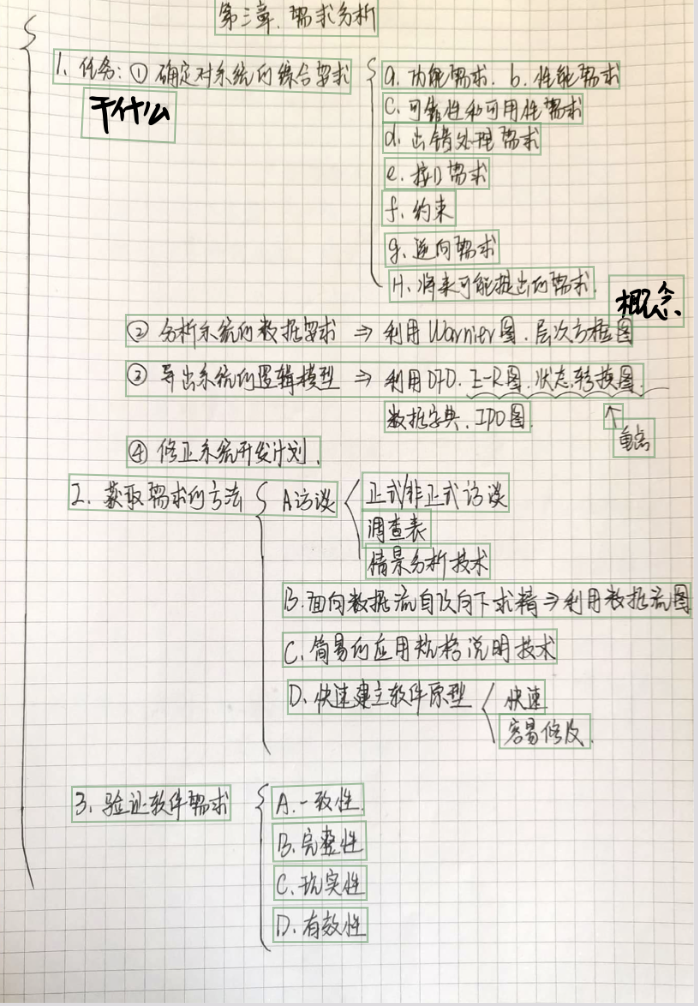 第三章 需求分析
1、任务：① 确定对系统的综合要求
干什么
a. 功能需求. b. 性能需求
C. 可靠性和可用性需求
d. 出错处理需求
e. 接口需求
f. 约束
g. 逆向需求
H. 将来可能提出的需求.
概念、
② 分析系统的数据要求 ⇒ 利用Warnier图. 层次方框图
③ 导出系统的逻辑模型 ⇒ 利用DFD. E-R图. 状态转换图.
数据字典. IPO图.
↑
重点
④ 修正系统开发计划.
2、获取需求的方法
A 访谈
正式/非正式访谈
调查表
情景分析技术
B. 面向数据流自顶向下求精⇒利用数据流图
C. 简易的应用规格说明技术
D. 快速建立软件原型
快速
容易修改.
3、验证软件需求
A. 一致性
B. 完整性
C. 现实性
D. 有效性